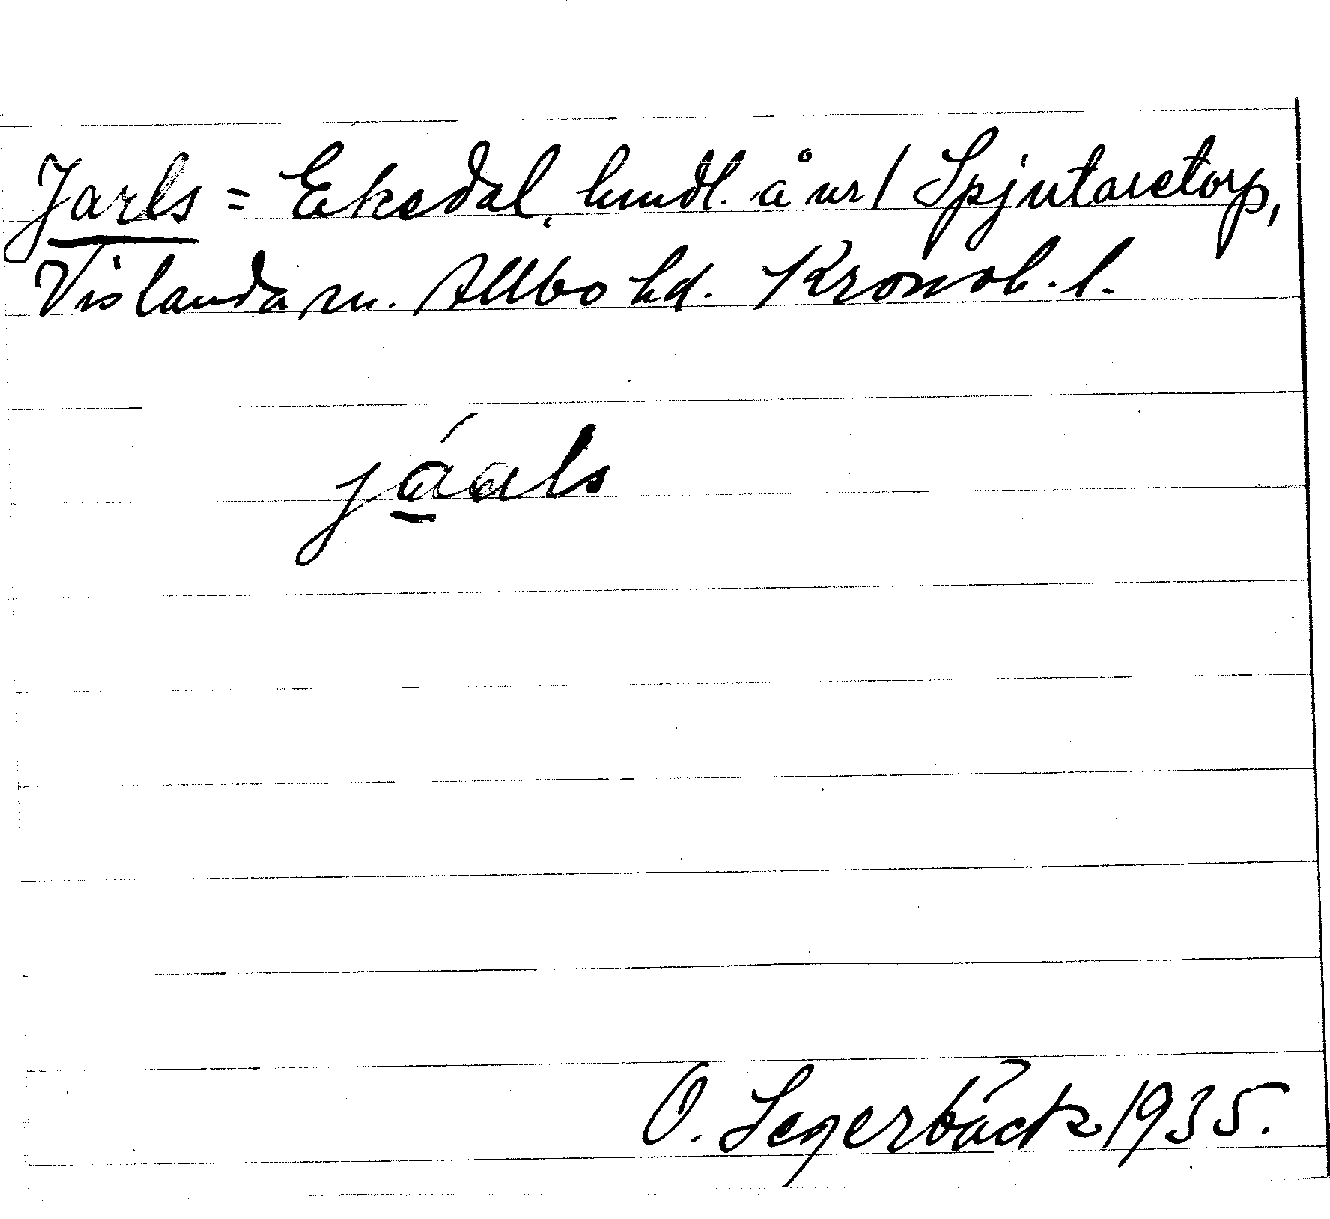 Jarls = Ekedal, hmdl. å nr 1 Spjutaretorp,
Vislanda sn. Allbo hd. Kronob. l.
jáals
O. Segerbäck 1935.